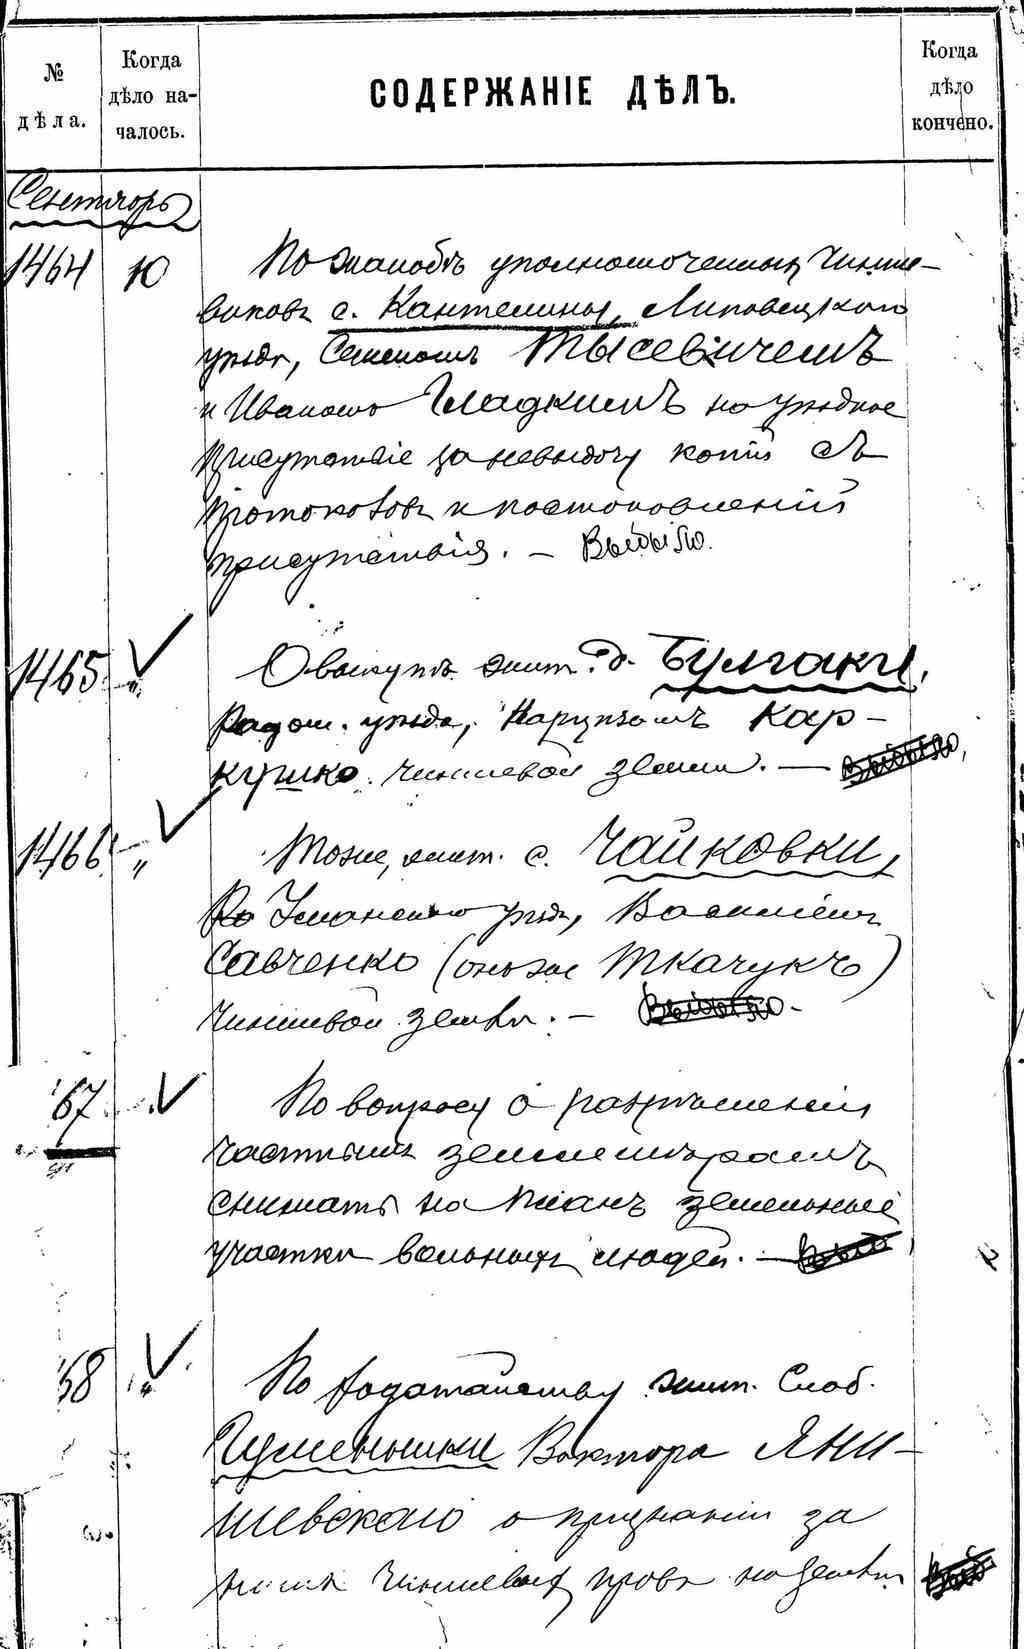 № дѣла.
Когда дѣло началось.
СОДЕРЖАНІЕ ДѢЛЪ.
Когда дѣло кончено.
Сентябрь
1464 10 По жалобѣ уполномоченныхъ чинше-
виковъ с. Кантелины, Липовецкаго
уѣзда, Семеномъ Тысевичемъ
и Иваномъ Гладкимъ на уѣздное
присутствіе за невыдачу копій съ
протоколовъ и постановленій
присутствія. – Выбыло.
1465 " О выкупѣ жит. д. Булгаки,
Радом. уѣзда, Кар-
кушко чиншевой земли. — Выбыло,
1466 " Тоже, жит. с. Чайковки,
Ра Уманскаго уѣзда, Василіемъ
Савченко (онъ же Ткачукъ)
чиншевой земли. – Выбыло.
67 По вопросу о разрѣшеніи
частнымъ землемѣрамъ
снимать на планъ земельные
участки вольныхъ людей. —
68 " По ходатайству жит. Слоб.
Гуменышки Виктора Яни-
шевскаго о признаніи за
нимъ чиншевыхъ правъ на землю